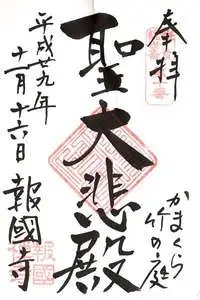 奉拝
かまくら
竹の庭
聖大悲殿
平成廿九年
十一月十六日
報國寺